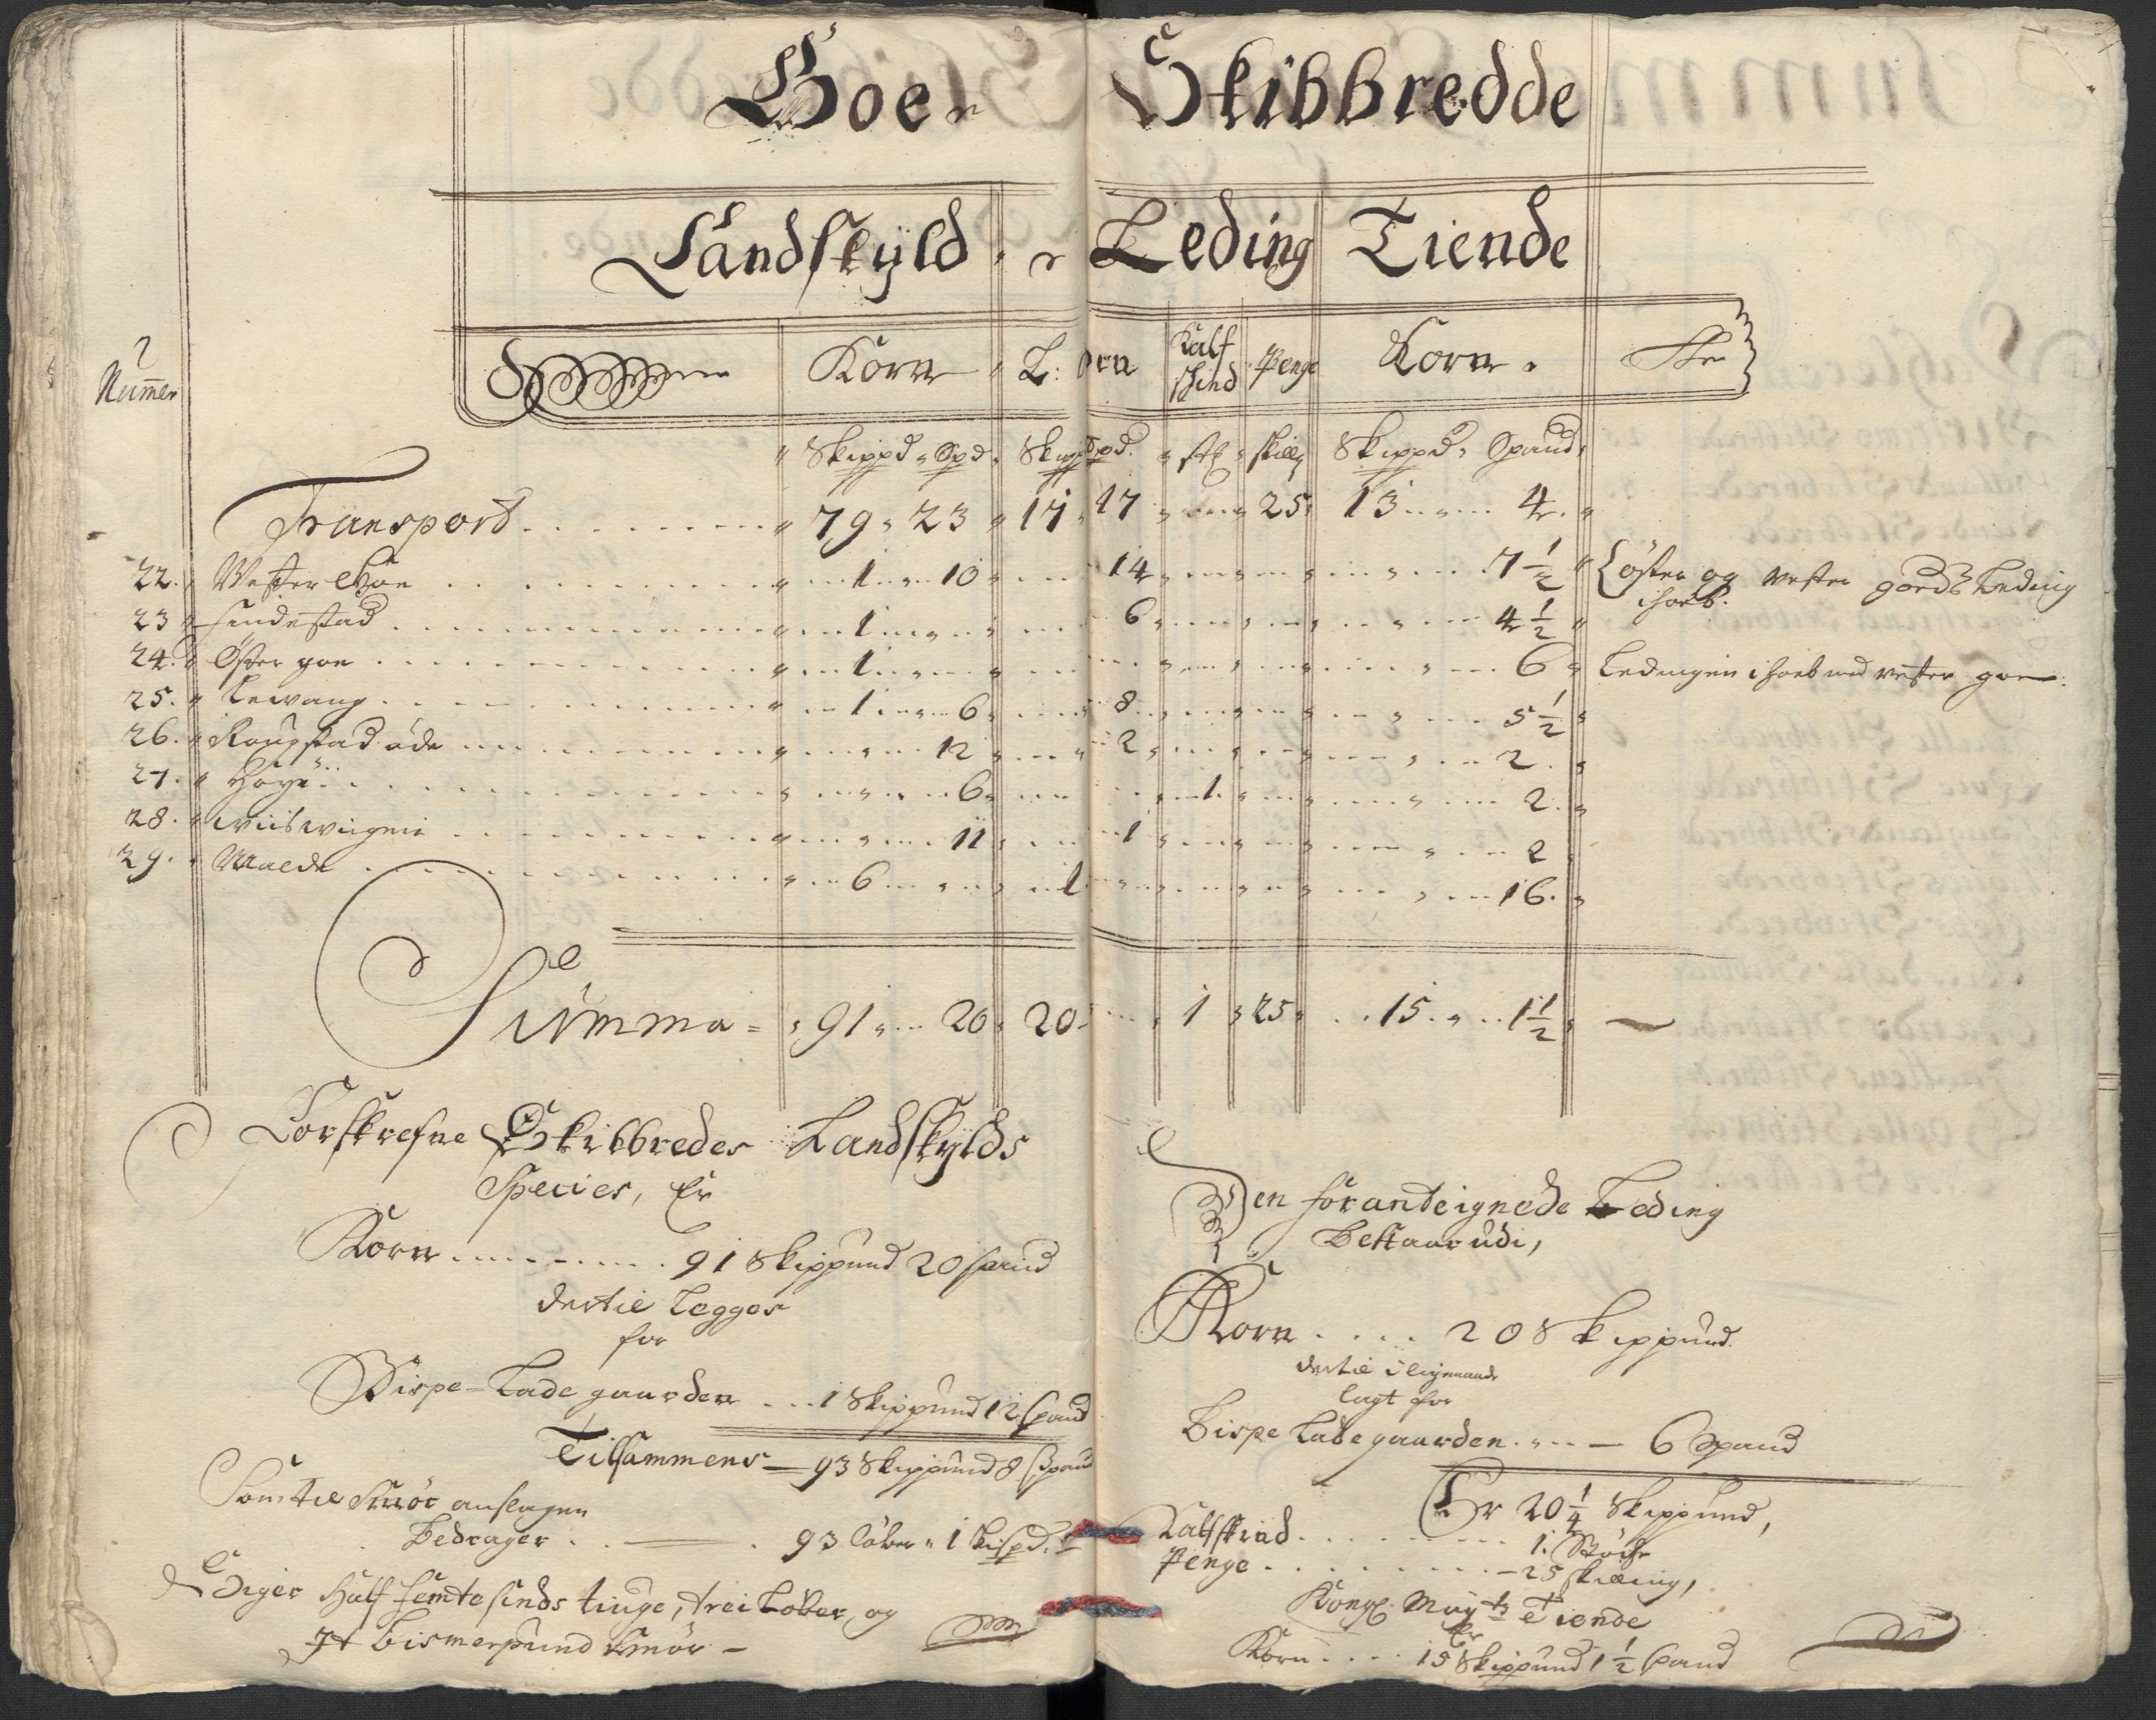 Goe Skibbredde
Landskyld Leding Tiende
Nummer Korn L: Korn Kalf skind Penge Korn Er
Skippd Spd Skippd Spd stk skill Skippd Spand
Transport 79 23 17 17 25 13 4
22. Wester Goe 1 10 14 7 1/2 öster og vester goeds Leding ihoeb.
23 1 6 4 1/2
24. Öster goe 1 6 Ledingen ihoeb med vester goe
25. Lewang 1 6 8 5 1/2
26. Rougstad öde 12 2 2
27. Höye 6 1 2
28. 11 1 2
29. Walde 6 1 16
Summa 91 20 20 1 25 15 1 1/2
Forskrefne Skibbredes Landskylds
Species, Er
Korn 91 Skippund 20 spand
dertil Legges
for
Bispe-Lade gaarden 1 Skippund 12 Spand
Tilsammens 93 Skippund 8 Spand
Som til Smör anslagen
Bedrager 93 Löber 1 Bispd.
Siger Half femte sinds tiuge, trei Löber, og
It Bismerpund Smör
Den för anteignede Leding
Bestaar udi,
Korn 20 Skippund
dertil
lagt for
Bispe Ladegaarden 6 Spand
Er 20 1/4 Skippund,
Kalfskind 1. Stöche
Penge 25 skilling,
Kongl. Mayts Tiende
Er
Korn 15 Skippund 1 1/2 Spand